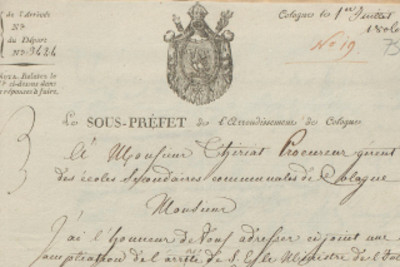 de l'Arrivée
N.°
du Départ
N.° 3626
NOTA. Relater le
N.° ci-dessus dans
les réponses à faire.
Cologne le 1er Juillet
N.o 19
Le SOUS-PRÉFET de l'Arrondissement de Cologne
À Monsieur Thiriat Procureur gérent
des écoles secondaires communales de Cologne
Monsieur
J'ai l'honneur de Vous adresser cijoint une
ampliation de l'arrêté de S. E. le Ministre de l'